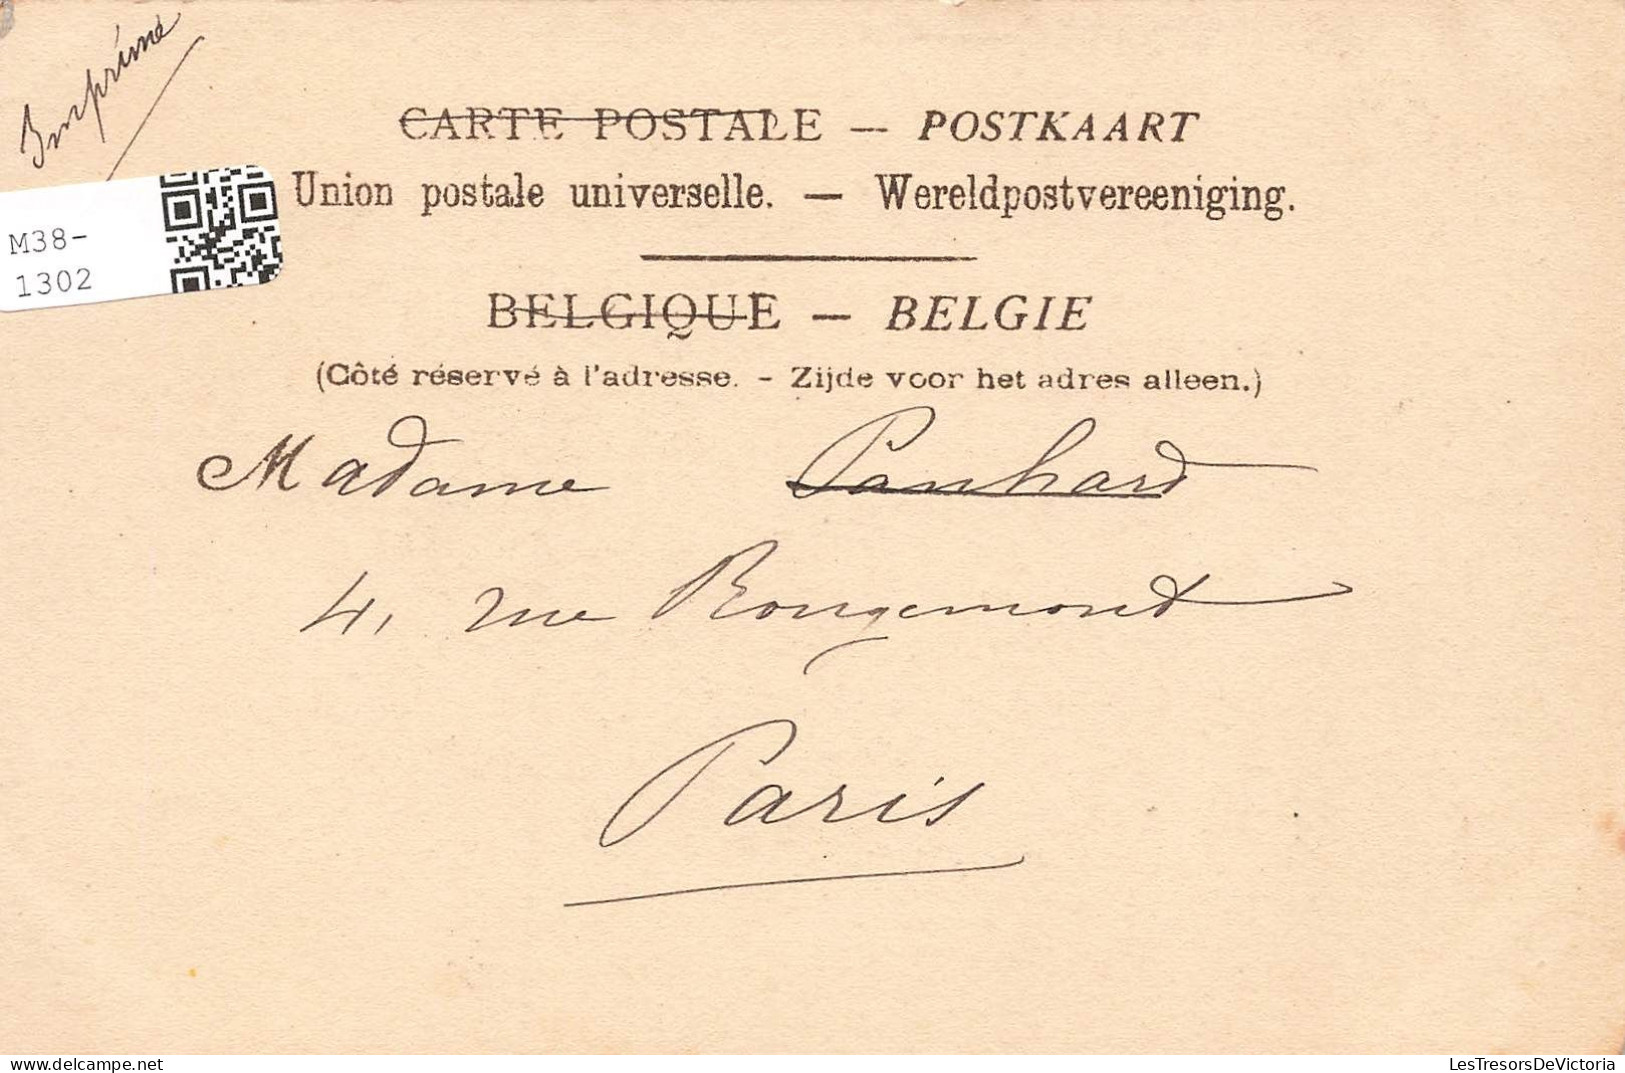 Imprimé
CARTE POSTALE — POSTKAART
Union postale universelle. — Wereldpostvereeniging.
M38-
1302
BELGIQUE — BELGIE
(Côté réservé à l'adresse. - Zijde voor het adres alleen.)
Madame Panhard
4, rue Rougemont
Paris
LesTresorsDeVictoria